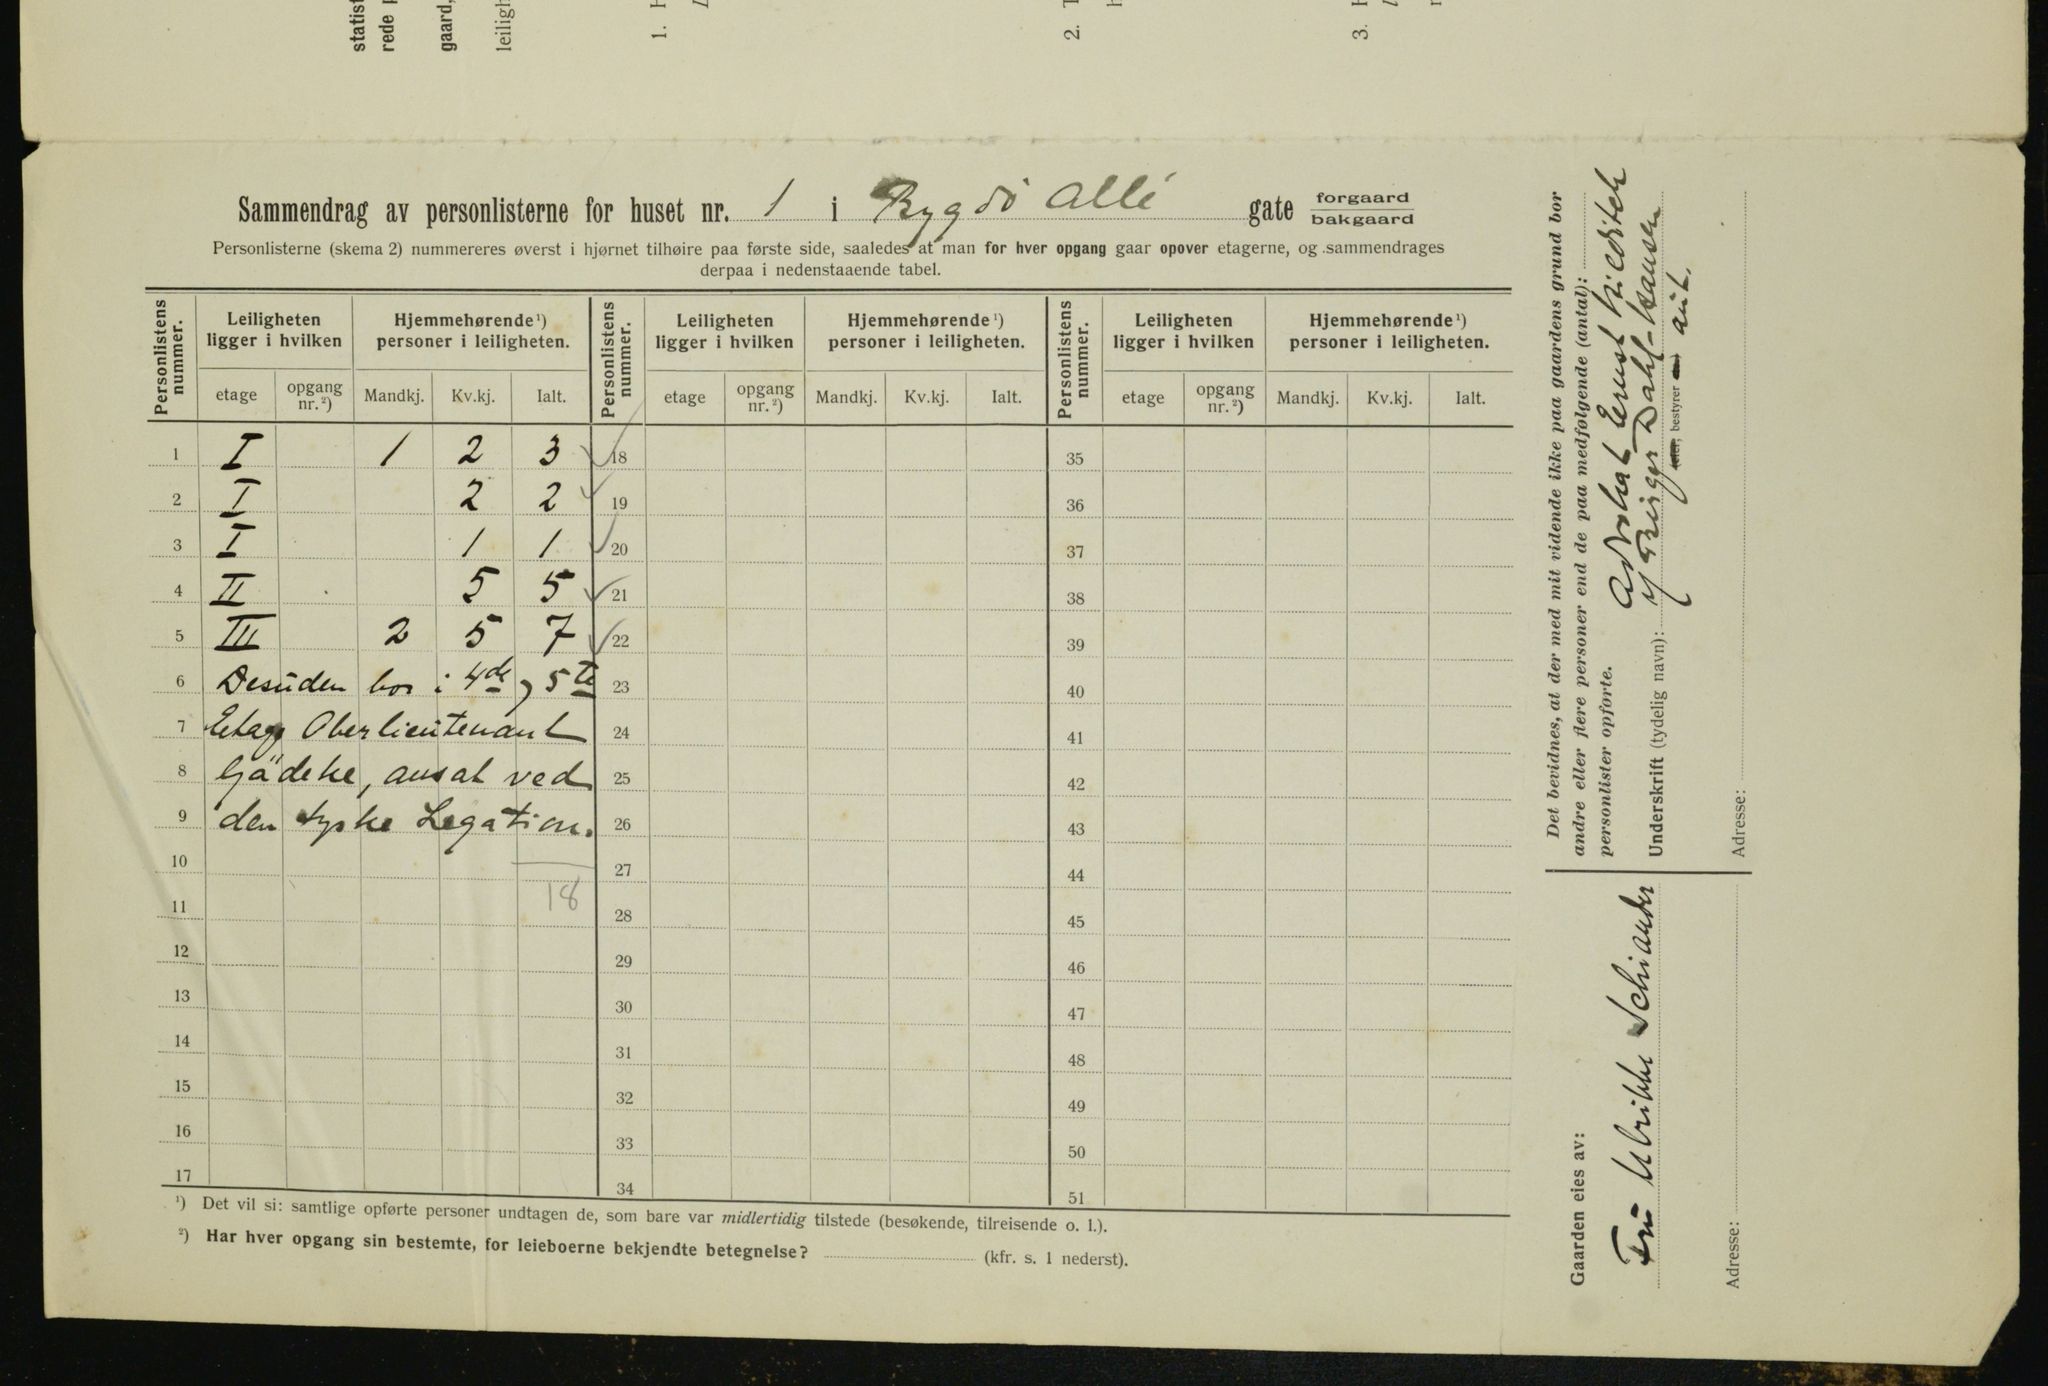 statist
rede p
gaard,
leiligh
1. H
2. T
3. H
Sammendrag av personlisterne for huset nr. 1 i Bygdö Allé gate forgaard
bakgaard
Personlisterne (skema 2) nummereres øverst i hjørnet tilhøire paa første side, saaledes at man for hver opgang gaar opover etagerne, og sammendrages
derpaa i nedenstaaende tabel.
Personlistens nummer. Leiligheten ligger i hvilken Hjemmehørende ¹) personer i leiligheten. Personlistens nummer. Leiligheten ligger i hvilken Hjemmehørende ¹) personer i leiligheten. Personlistens nummer. Leiligheten ligger i hvilken Hjemmehørende ¹) personer i leiligheten.
etage opgang nr. ²) Mandkj. Kv.kj. Ialt. etage opgang nr. ²) Mandkj. Kv.kj. Ialt. etage opgang nr. ²) Mandkj. Kv.kj. Ialt.
1 I 1 2 3 18 35
2 I 2 2 19 36
3 I 1 1 20 37
4 II 5 5 21 38
5 III 2 5 7 22 39
6 Desuden bor i 4de, 5te 23 40
7 Etage Oberlieutenant 24 41
8 Gädeke, ansat ved 25 42
9 den tyske Legation. 26 43
10 27 44
11 18 28 45
12 29 46
13 30 47
14 31 48
15 32 49
16 33 50
17 34 51
¹) Det vil si: samtlige opførte personer undtagen de, som bare var midlertidig tilstede (besøkende, tilreisende o. l.).
²) Har hver opgang sin bestemte, for leieboerne bekjendte betegnelse? (kfr. s. 1 nederst).
Det bevidnes, at der med mit vidende ikke paa gaardens grund bor
andre eller flere personer end de paa medfølgende (antal):
personlister opførte. Advokat Ernst
Underskrift (tydelig navn): Birger Dahl-Hansen
(eier, bestyrer
Adresse:
Gaarden eies av:
Fru Ulrikke Schiander
Adresse: